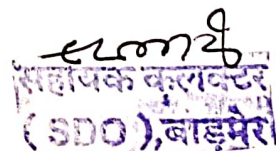 सहायक कलक्टर
(SDO),बाड़मेर